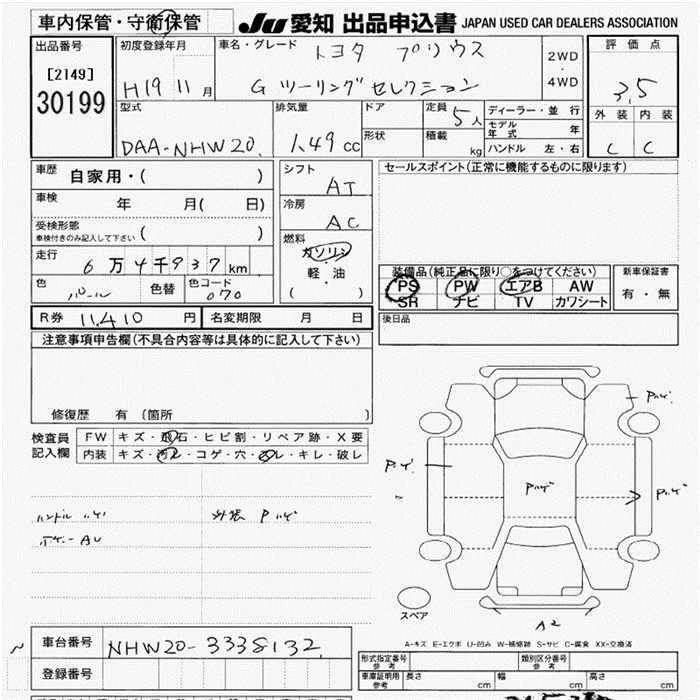 車内保管・守衛保管
JU 愛知 出品申込書 JAPAN USED CAR DEALERS ASSOCIATION
出品番号
[2149]
30199
初度登録年月
H19 11月
車名・グレード
トヨタ プリウス
G ツーリングセレクション
2WD
・
4WD
評価点
3.5
外装 内装
C C
型式
DAA-NHW20
排気量
1.49 cc
ドア
形状
定員
5人
積載
kg
ディーラー・並行
モデル年式 年
ハンドル 左・右
車歴 自家用・( )
車検 年 月( 日)
受検形態
車検付きのみ記入して下さい ( )
走行 6万4千937km
色 パール 色替 色コード 070
シフト
AT
冷房
AC
燃料
ガソリン
軽・油
( )
セールスポイント(正常に機能するものに限ります)
装備品(純正品に限り○をつけてください)
PS PW エアB AW
SR ナビ TV カワシート
新車保証書
有・無
R券 11,410 円 名変期限 月 日
後日品
注意事項申告欄(不具合内容等は具体的に記入して下さい)
修復歴 有 〔箇所 〕
検査員記入欄
FW キズ・飛石・ヒビ割・リペア跡・X要
内装 キズ・汚レ・コゲ・穴・スレ・キレ・破レ
ハンドル ハゲ
外装 Pハゲ
Pハゲ
Pハゲ
Pハゲ
Pハゲ
スペア
A2
A-キズ E-エクボ U-凹み W-補修跡 S-サビ C-腐食 XX-交換済
車台番号 NHW20-3338132
登録番号
形式指定番号
参考
類別区分番号
参考
車庫証明用
参考
長さ cm 幅 cm 高さ cm